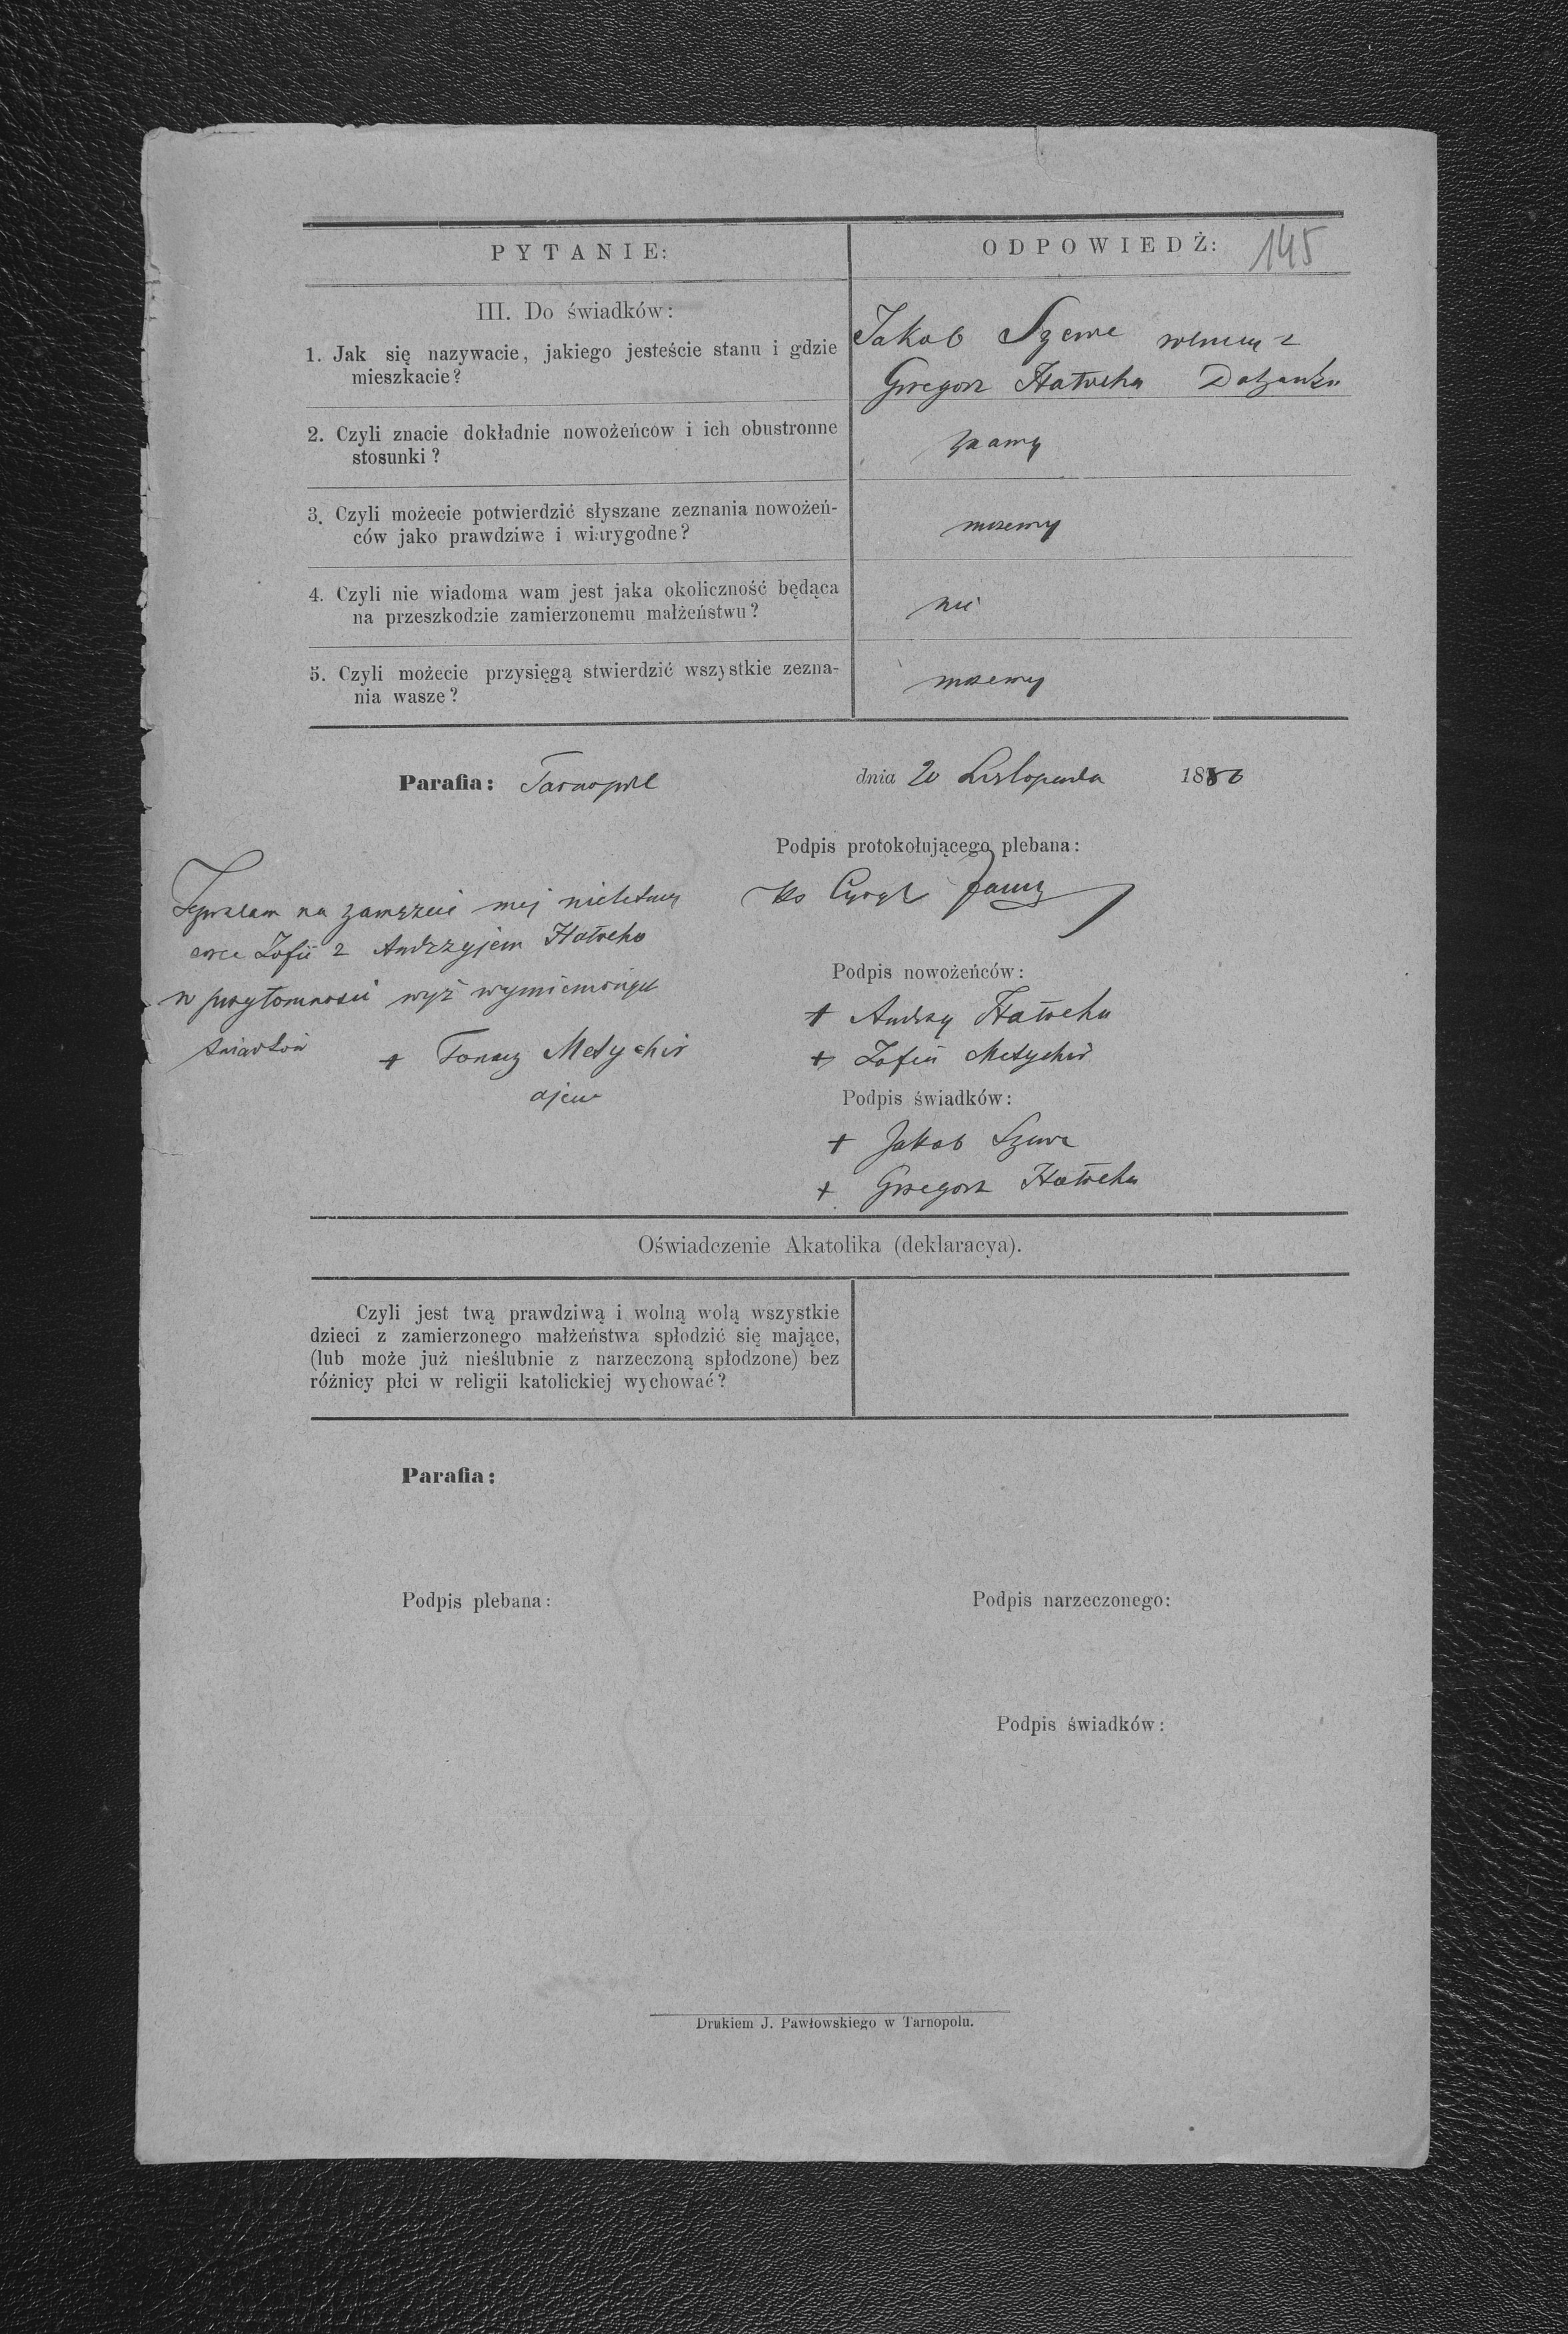 PYTANIE:
ODPOWIEDŹ:
145
III. Do świadków:
1. Jak się nazywacie, jakiego jesteście stanu i gdzie
mieszkacie?
Jakob Szewc rolnicy z
Grzegorz Hałucha
2. Czyli znacie dokładnie nowożeńców i ich obustronne
stosunki?
znamy
3. Czyli możecie potwierdzić słyszane zeznania nowożeń-
ców jako prawdziwe i wiarygodne?
mozemy
4. Czyli nie wiadoma wam jest jaka okoliczność będąca
na przeszkodzie zamierzonemu małżeństwu?
nie
5. Czyli możecie przysięgą stwierdzić wszystkie zezna-
nia wasze?
mozemy
Parafia: Tarnopol
dnia 20 Listopada 1880
Podpis protokołującego plebana:
Ks Cyryl
Zezwalam na zamęzcie mej nieletniej
corce Zofii z Andrzejem Hałucha
w przytomnosci wyż wymienionych
swiadków
+ Tomasz Metychir
ojciec
Podpis nowożeńców:
+ Andrzej Hałucha
+ Zofia Metychir
Podpis świadków:
+ Jakob Szewc
+ Grzegorz Hałucha
Oświadczenie Akatolika (deklaracya).
Czyli jest twą prawdziwą i wolną wolą wszystkie
dzieci z zamierzonego małżeństwa spłodzić się mające,
(lub może już nieślubnie z narzeczoną spłodzone) bez
różnicy płci w religii katolickiej wychować?
Parafia:
Podpis plebana:
Podpis narzeczonego:
Podpis świadków:
Drukiem J. Pawłowskiego w Tarnopolu.